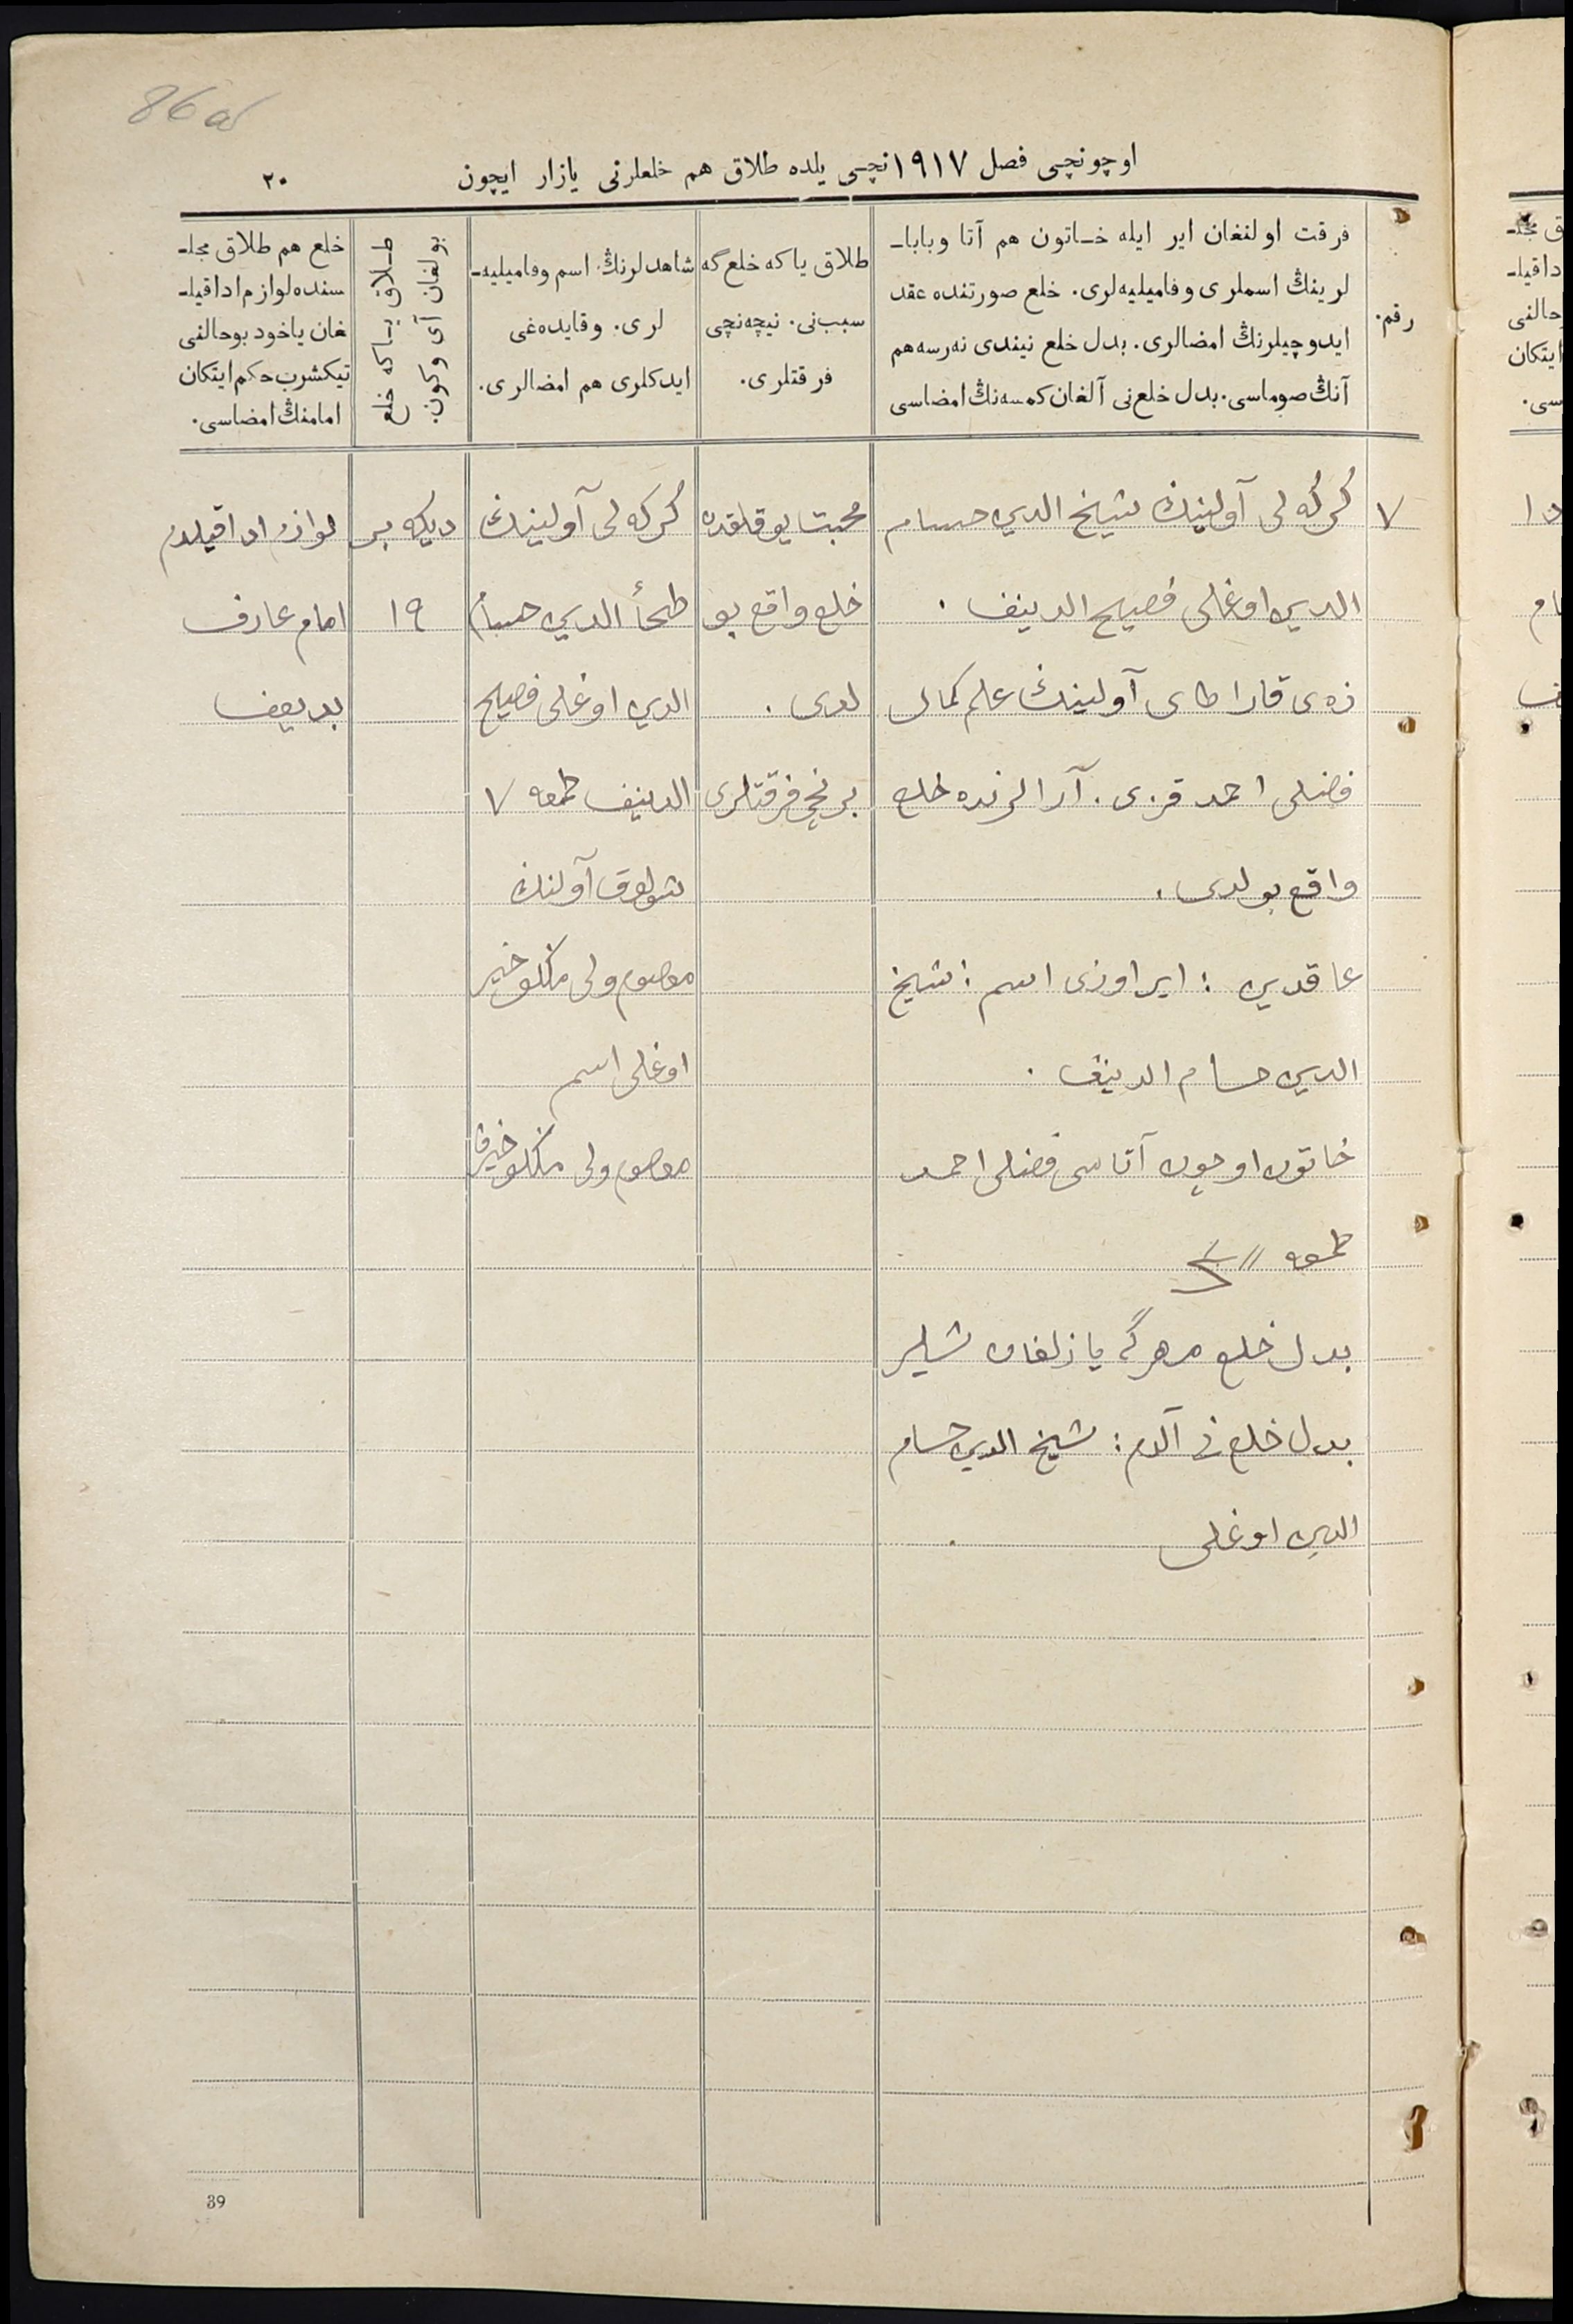 86 об
اوچونچی فصل ۱۹۱۷نچی یلده طلاق هم خلعلرنی یازار ایچون
۲۰
رقم.
فرقت اولنغان ایر ایله خـاتون هم آتا وباباـ
لرینڭ اسملری وفامیلیه‌لری. خلع صورتنده عقد
ایدوچیلرنڭ امضالری. بدل خلع نیندی نه‌رسه هم
آنڭ صوماسی. بدل خلع‌نی آلغان کمسه‌نڭ امضاسی
طلاق یاکه خلع گه
سبب‌نی. نیچه‌نچی
فرقتلری.
شاهدلرنڭ اسم وفامیلیه‌ـ
لری. وقایده‌غی
ایدکلری هم امضالری.
طـلاق یـاکه خلع
بولغان آی وکون.
خلع هم طلاق مجلـ
سنده لوازم اداقیلـ
غان یاخود بوحالنی
تیکشرب حکم ایتکان
امامنڭ امضاسی.
۷
کرکه لی آولینڭ شیخ الدین حسام
الدین اوغلی فصیح الدینف.
قارا طای آولینڭ علم کمال
فضلی احمد قزی. آرالرنده خلع
واقع بولدی.
عاقدین: ایر اوزی اسم: شیخ
الدین حسام الدینف.
خاتون اوچون آتاسی فضلی احمد
طمغه //
بدل خلع مهرگه یازلغان
بدل خلع نی آلدم: شیخ الدین حسام
الدین اوغلی
محبت یوقلقدن
خلع واقع بو
لدی.
برنچی فرقتلری
کرکه لی آولینڭ
الدین حسام
الدین اوغلی فصیح
الدینف طمغه ۷
آولنڭ
معصوم ولی
اوغلی اسم
معصوم ولی
دیکه بر
۱۹
لوازم ادا قیلدم
امام عارف
بدیعف
39